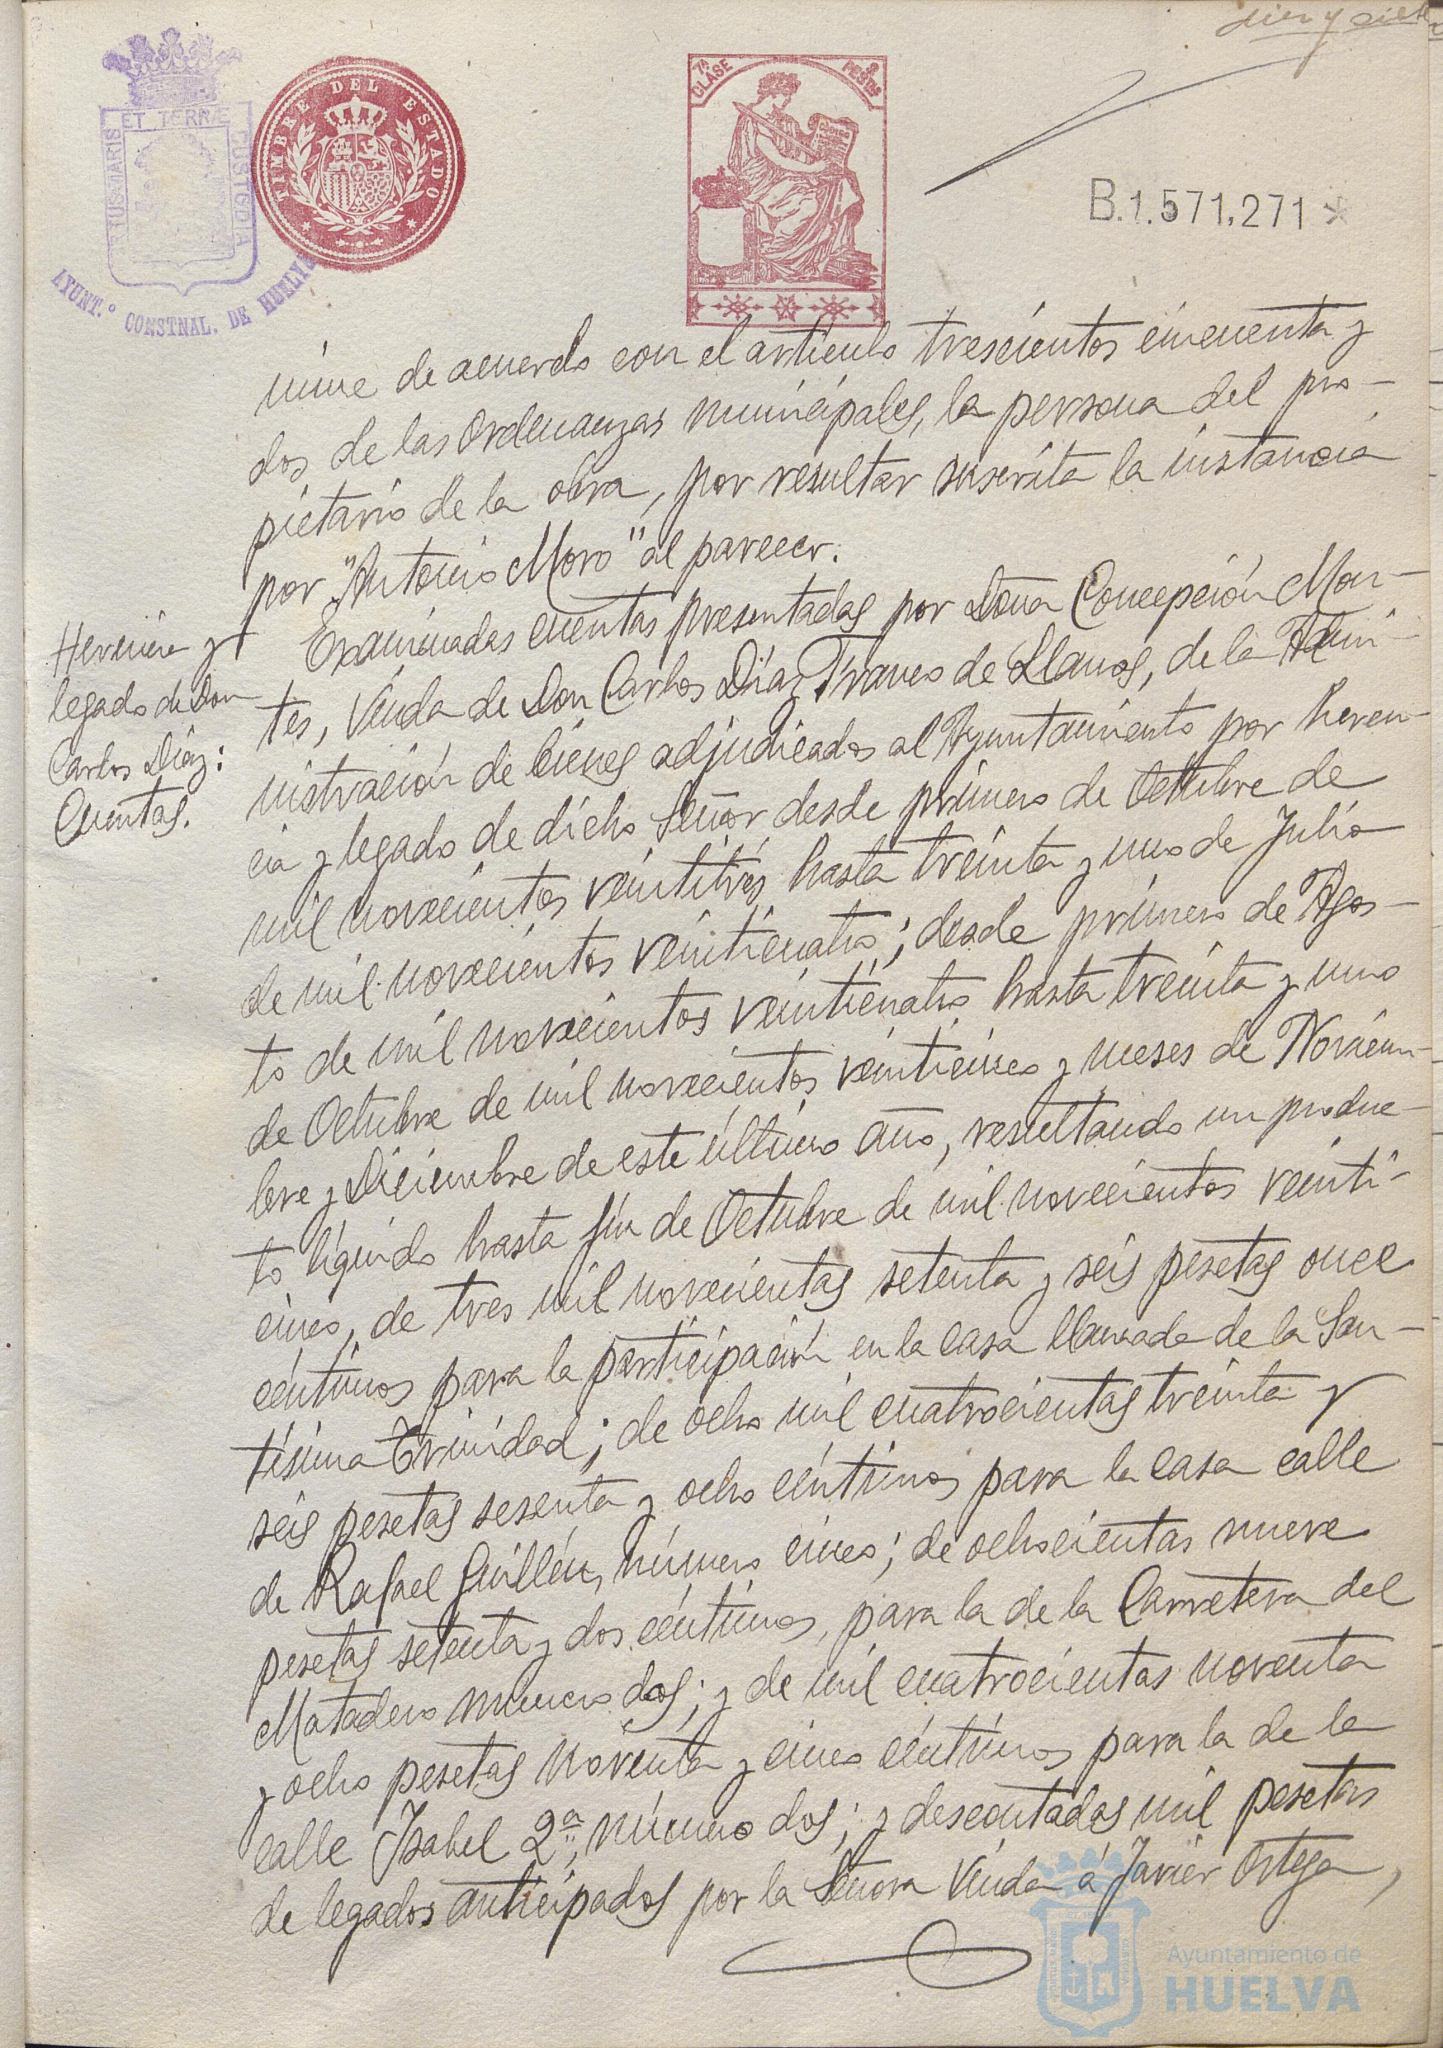 diez y siete
ET TERRÆ
PORTUS MARIS
CUSTODIA
AYUNT.º CONSTNAL. DE HUELVA
TIMBRE DEL ESTADO
7ª CLASE
PESETAS
B.1.571,271 *
mine de acuerdo con el artículo trescientos cincuenta y
dos de las Ordenanzas municipales, la persona del pro-
pietario de la obra, por resultar suscrita la instancia
por "Antonio Moro" al parecer.
Herencia y
legado de Don
Carlos Díaz:
Cuentas.
Examinadas cuentas presentadas por Doña Concepción Mon-
tes, Viuda de Don Carlos Díaz Franco de Llanos, de la Admi-
nistración de bienes adjudicados al Ayuntamiento por heren-
cia y legado de dicho Señor desde primero de Octubre de
mil novecientos veintitrés hasta treinta y uno de Julio
de mil novecientos veinticuatro; desde primero de Agos-
to de mil novecientos veinticuatro hasta treinta y uno
de Octubre de mil novecientos veinticinco y meses de Noviem-
bre y Diciembre de este último año, resultando un produc-
to líquido hasta fin de Octubre de mil novecientos veinti-
cinco, de tres mil novecientas setenta y seis pesetas once
céntimos para la participación en la casa llamada de la San-
tísima Trinidad; de ocho mil cuatrocientas treinta y
seis pesetas sesenta y ocho céntimos para la casa calle
de Rafael Guillén, número cinco; de ochocientas nueve
pesetas setenta y dos céntimos, para la de la Carretera del
Matadero numero dos; y de mil cuatrocientas noventa
y ocho pesetas noventa y cinco céntimos para la de la
calle Isabel 2ª, número dos; y descontadas mil pesetas
de legados anticipados por la Señora Viuda á Javier Ortega,
Ayuntamiento de
HUELVA